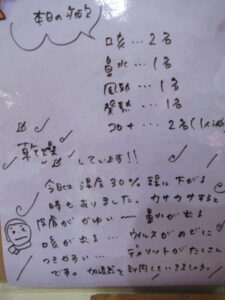 本日の病欠
咳…2名
鼻水…1名
風邪…1名
発熱…1名
コロナ…2名(1人減)
乾燥
しています!!
今日は湿度30%程に下がる
時もありました。カサカサすると
皮膚がかゆい〜 鼻水が出る
咳が出る… ウイルスがのどに
つきやすい… デメリットがたくさん
です。加湿器を利用していきましょう。